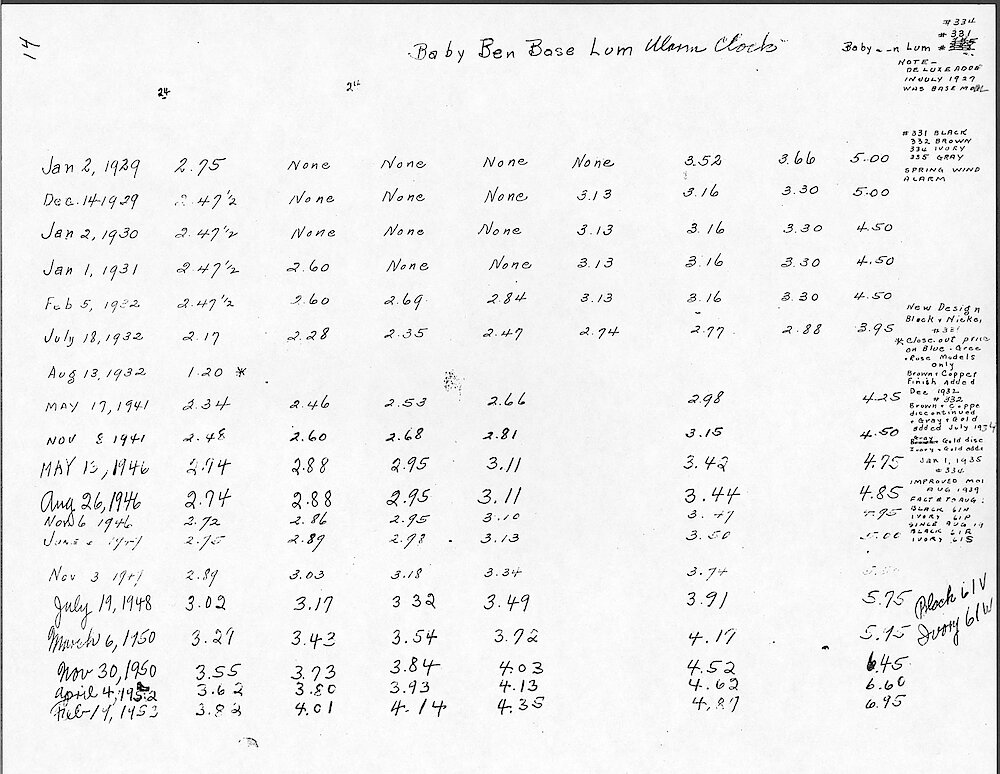 14
Baby Ben Base Lum Alarm Clock
Baby Lum
#334
#331
NOTE-
DELUXE ADDE
IN JULY 1927
WAS BASE MODEL
24
#331 BLACK
332 BROWN
334 IVORY
335 GRAY
SPRING WIND
ALARM
Jan 2, 1929 2.75 None None None None 3.52 3.66 5.00
Dec. 14 1929 2.47 1/2 None None None 3.13 3.16 3.30 5.00
Jan 2, 1930 2.47 1/2 None None None 3.13 3.16 3.30 4.50
Jan 1, 1931 2.47 1/2 2.60 None None 3.13 3.16 3.30 4.50
Feb 5, 1932 2.47 1/2 2.60 2.69 2.84 3.13 3.16 3.30 4.50
July 18, 1932 2.17 2.28 2.35 2.47 2.74 2.77 2.88 3.95
Aug 13, 1932 1.20 *
MAY 17, 1941 2.34 2.46 2.53 2.66 2.98 4.25
NOV 8 1941 2.48 2.60 2.68 2.81 3.15 4.50
MAY 13, 1946 2.74 2.88 2.95 3.11 3.42 4.75
Aug 26, 1946 2.74 2.88 2.95 3.11 3.44 4.85
Nov 6 1946 2.72 2.86 2.95 3.10 3.47 4.95
2.75 2.89 2.98 3.13 3.50 5.00
Nov 3 2.89 3.03 3.18 3.34 3.74
July 19, 1948 3.02 3.17 3 32 3.49 3.91 5.75
March 6, 1950 3.27 3.43 3.54 3.72 4.17 5.95
Nov 30, 1950 3.55 3.73 3.84 4.03 4.52 6.45
April 4, 1952 3.62 3.80 3.93 4.13 4.62 6.60
Feb 14, 1953 3.82 4.01 4.14 4.35 4.87 6.95
New Design
Black + Nickel
#331
* Close out price
on Blue - Gree
+ Rose Models
only
Brown + Copper
Finish Added
Dec 1932
#332
Brown + Coppe
discontinued
+ Gray + Gold
added July 1934
Gold disc
Ivory + Gold adde
Jan 1, 1935
#334
IMPROVED MOV
AUG 1939
BLACK 61N
IVORY 61P
SINCE AUG 19
BLACK 61R
IVORY 61S
Black 61V
Ivory 61W